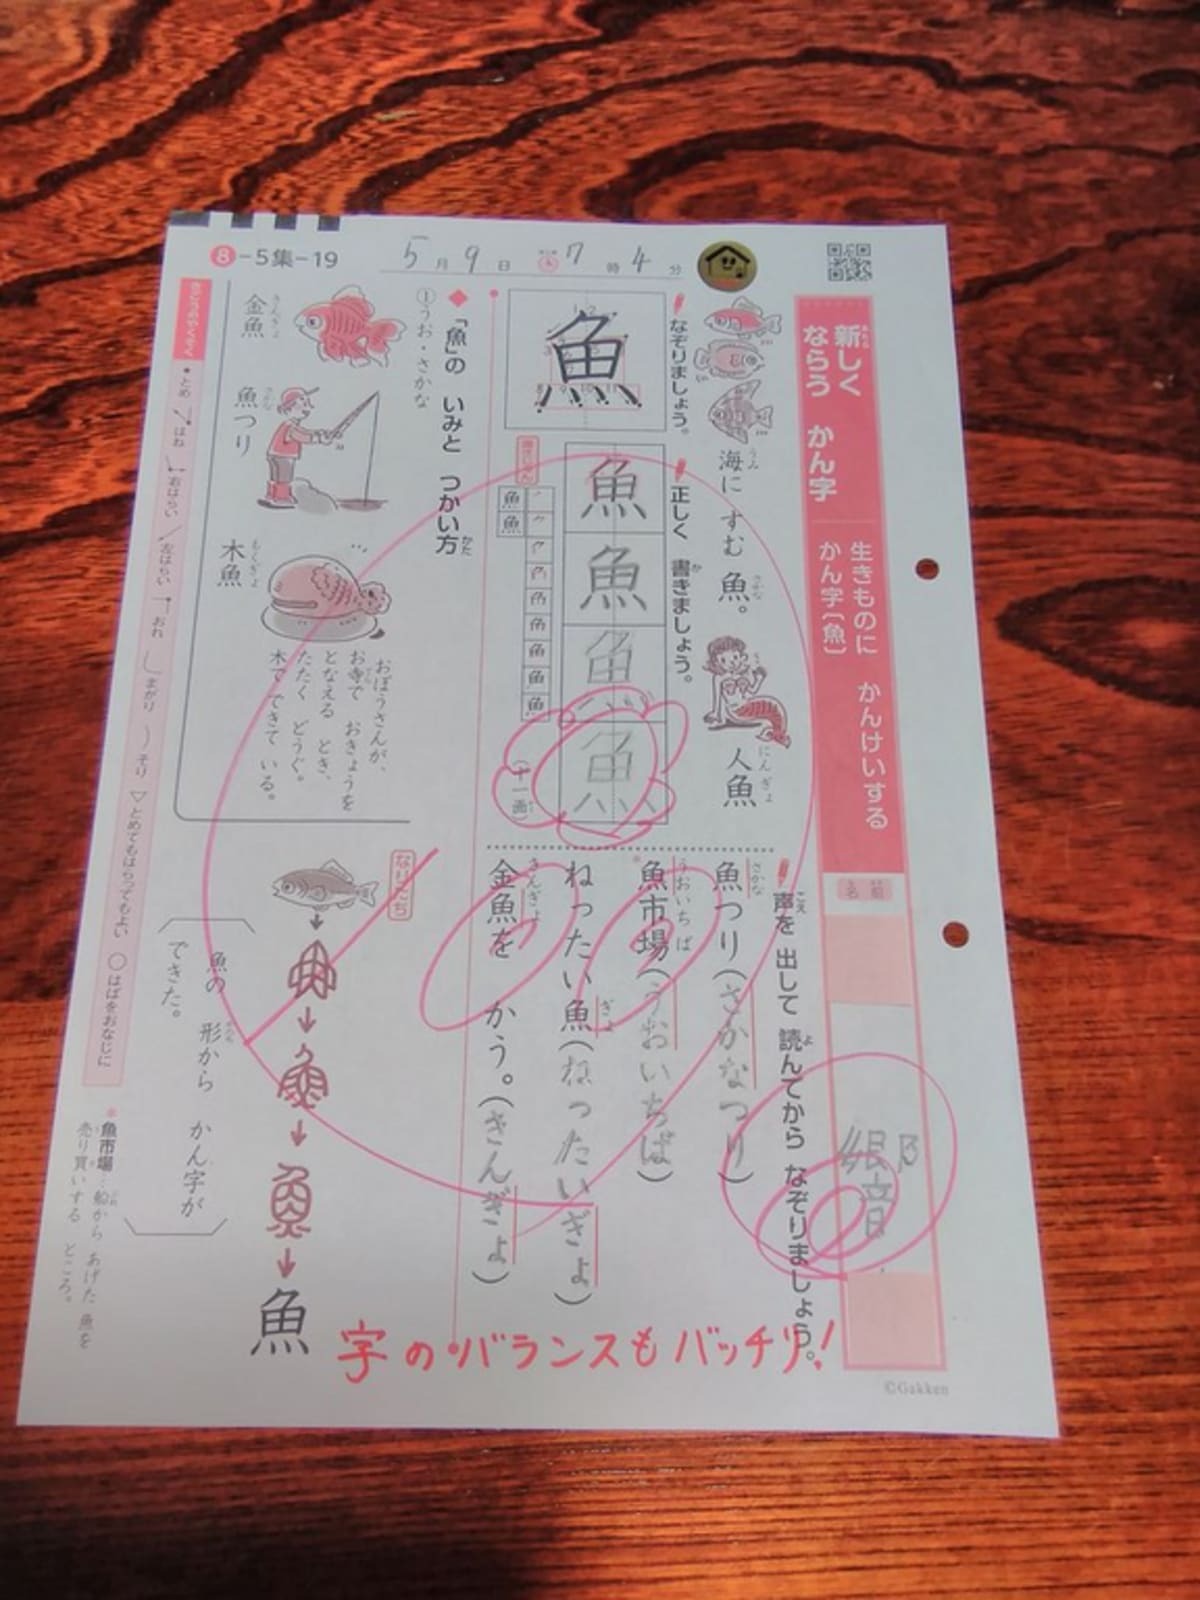 8-5集-19
5月9日 7時4分
新しく ならう かん字
生きものに かんけいする
かん字〔魚〕
名前
海に すむ 魚。
人魚
なぞりましょう。
魚
正しく 書きましょう。
魚
魚
魚
魚
(十一画)
声を 出して 読んでから なぞりましょう。
魚つり(さかなつり)
※魚市場(うおいちば)
ねったい魚(ねったいぎょ)
金魚を かう。(きんぎょ)
◆「魚」の いみと つかい方
①うお・さかな
金魚
魚つり
木魚
おぼうさんが、
お寺で おきょうを
となえる とき、
たたく どうぐ。
木で できて いる。
なりたち
魚
魚の 形から かん字が
できた。
•とめ
はね
右はらい
左はらい
おれ
まがり
そり
▽とめてもはらってもよい
○はばをおなじに
※魚市場…船から あげた 魚を
売り買いする ところ。
字のバランスもバッチリ!
©Gakken